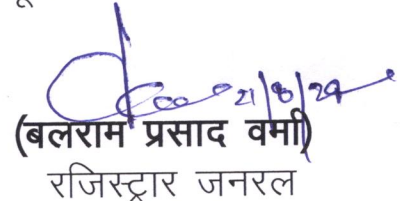 21/8/24
(बलराम प्रसाद वर्मा)
रजिस्ट्रार जनरल